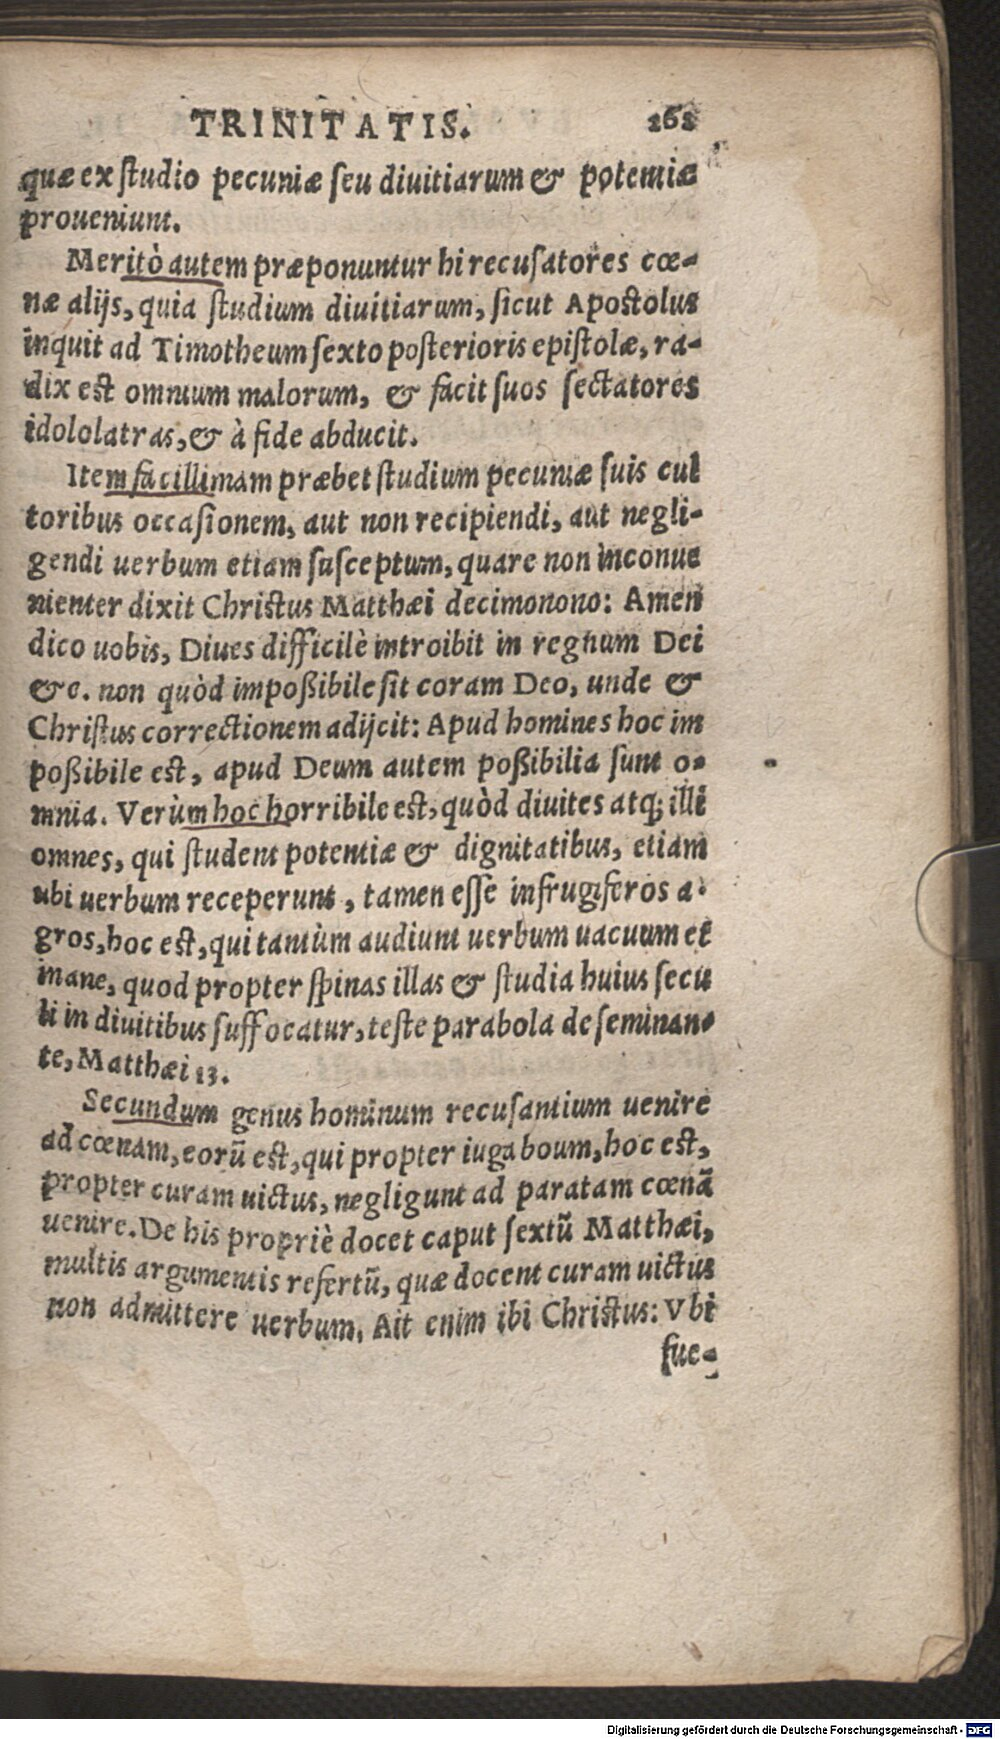 TRINITATIS. 261
quæ ex ſtudio pecuniæ ſeu diuitiarum & potentiæ
proueniunt.
Meritò autem præponuntur hi recuſatores cœ-
næ alijs, quia ſtudium diuitiarum, ſicut Apoſtolus
inquit ad Timotheum ſexto poſterioris epiſtolæ, ra-
dix eſt omnium malorum, & facit ſuos ſectatores
idololatras, & à fide abducit.
Item facillimam præbet ſtudium pecuniæ ſuis cul
toribus occaſionem, aut non recipiendi, aut negli-
gendi uerbum etiam ſuſceptum, quare non inconue
nienter dixit Chriſtus Matthæi decimonono: Amen
dico uobis, Diues difficilè introibit in regnum Dei
&c. non quòd impoßibile ſit coram Deo, unde &
Chriſtus correctionem adijcit: Apud homines hoc im
poßibile eſt, apud Deum autem poßibilia ſunt o-
mnia. Verùm hoc horribile eſt, quòd diuites atq; illi
omnes, qui ſtudent potentiæ & dignitatibus, etiam
ubi uerbum receperunt, tamen eſſe infrugiferos a-
gros, hoc eſt, qui tantùm audiunt uerbum uacuum et
inane, quod propter ſpinas illas & ſtudia huius ſecu
li in diuitibus ſuffocatur, teſte parabola de ſeminan-
te, Matthæi 13.
Secundum genus hominum recuſantium uenire
ad cœnam, eorũ eſt, qui propter iuga boum, hoc eſt,
propter curam uictus, negligunt ad paratam cœnã
uenire. De his propriè docet caput ſextũ Matthæi,
multis argumentis refertũ, quæ docent curam uictus
non admittere uerbum. Ait enim ibi Chriſtus: Vbi
fue-
Digitalisierung gefördert durch die Deutsche Forschungsgemeinschaft - DFG